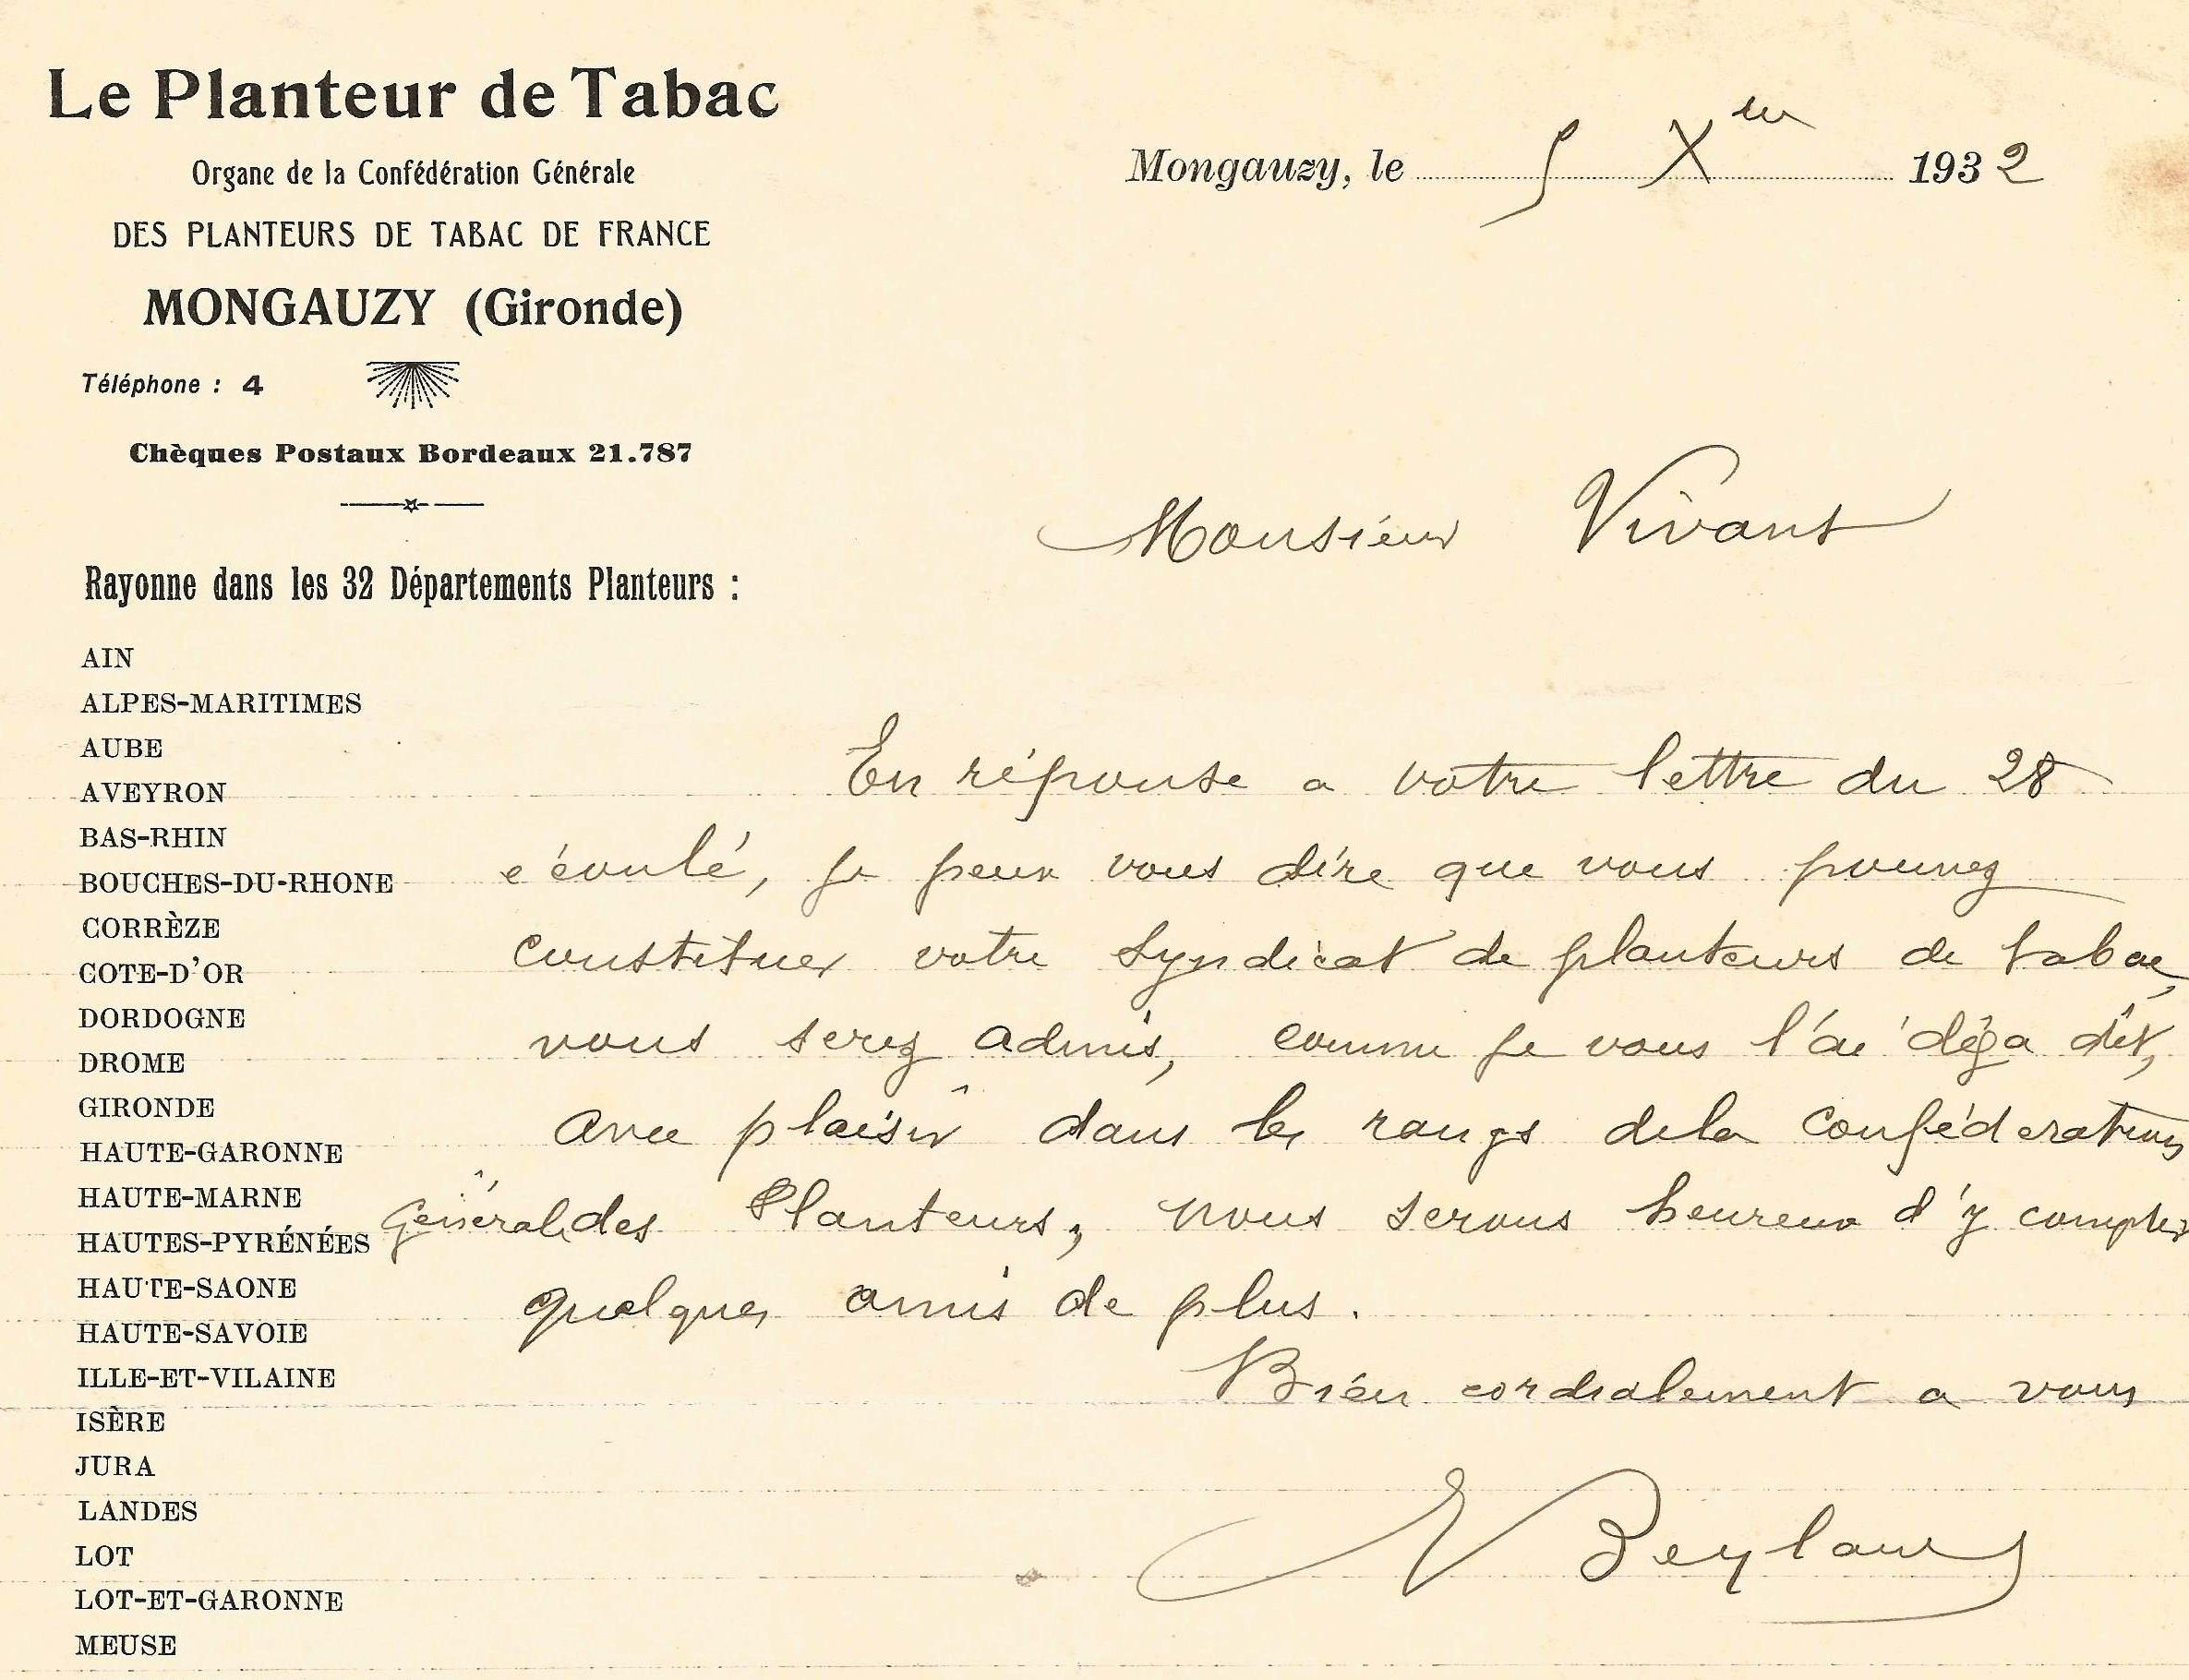 Le Planteur de Tabac
Organe de la Confédération Générale
DES PLANTEURS DE TABAC DE FRANCE
MONGAUZY (Gironde)
Téléphone : 4
Chèques Postaux Bordeaux 21.787
Rayonne dans les 32 Départements Planteurs :
AIN
ALPES-MARITIMES
AUBE
AVEYRON
BAS-RHIN
BOUCHES-DU-RHONE
CORRÈZE
COTE-D'OR
DORDOGNE
DROME
GIRONDE
HAUTE-GARONNE
HAUTE-MARNE
HAUTES-PYRÉNÉES
HAUTE-SAONE
HAUTE-SAVOIE
ILLE-ET-VILAINE
ISÈRE
JURA
LANDES
LOT
LOT-ET-GARONNE
MEUSE
Mongauzy, le 5 Xbre 1932
Monsieur Vivant
En réponse a votre lettre du 28
écoulé, je peux vous dire que vous pouvez
constituer votre syndicat de planteurs de tabac,
vous serez admis, comme je vous l'ai déja dit,
avec plaisir dans les rangs de la Confédération
Générale des Planteurs, nous serons heureux d'y compter
quelques amis de plus.
Bien cordialement a vous
Beylard